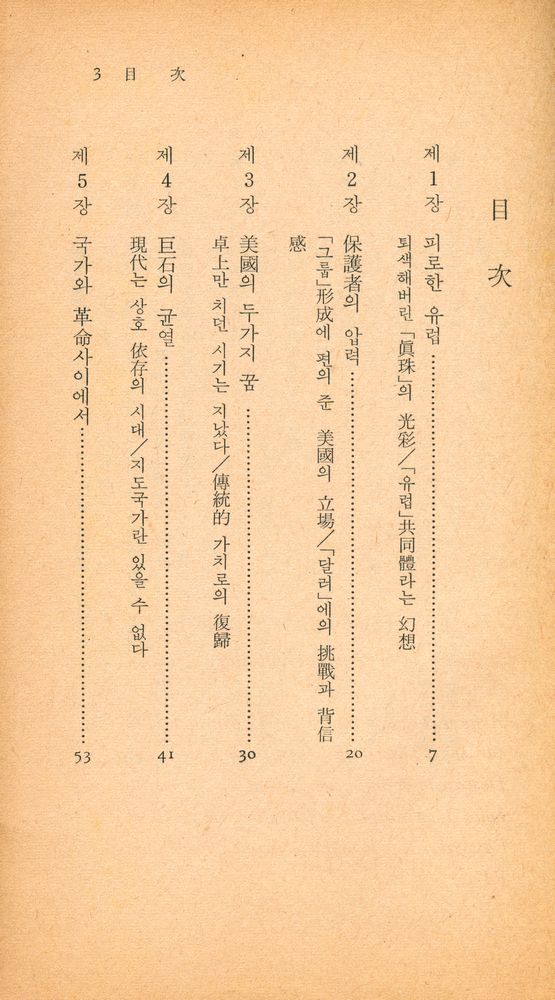 3 目 次
目 次
제1장 피로한 유럽 7
퇴색해버린 「眞珠」의 光彩/「유럽」共同體라는 幻想
제2장 保護者의 압력 20
「그룹」形成에 편의 준 美國의 立場/「달러」에의 挑戰과 背信
感
제3장 美國의 두가지 꿈 30
卓上만 치던 시기는 지났다/傳統的 가치로의 復歸
제4장 巨石의 균열 41
現代는 상호 依存의 시대/지도국가란 있을 수 없다
제5장 국가와 革命사이에서 53